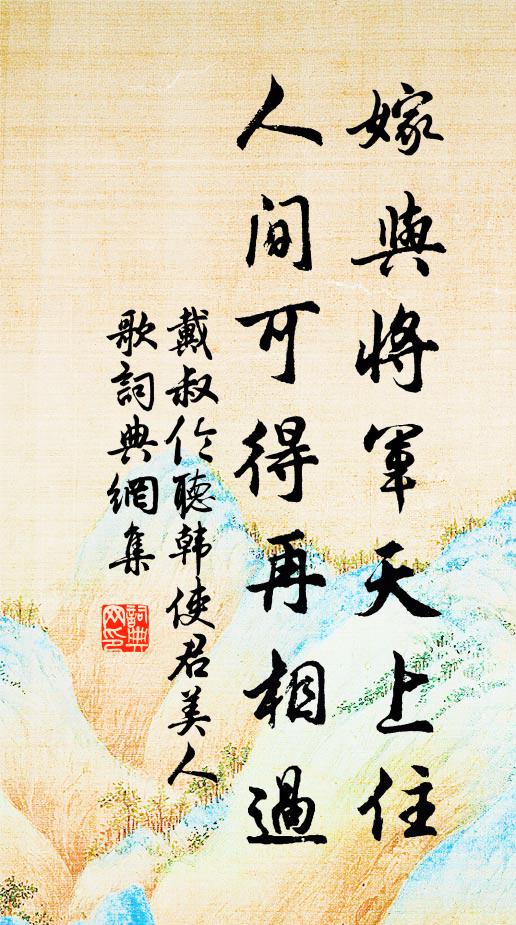 嫁與將軍天上住
人間可得再相過
戴叔伦聽韩使君美人
歌詞典網集
詞典
网印